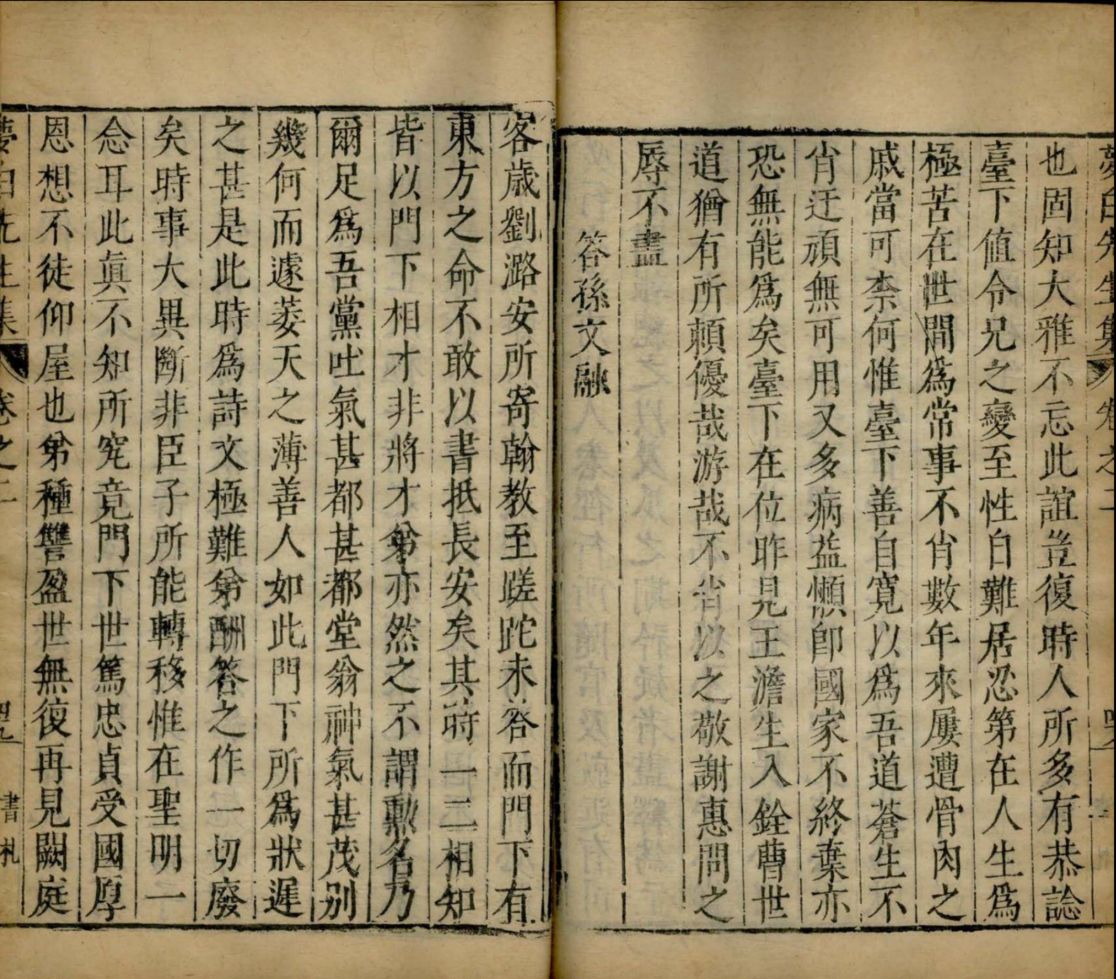 夢白先生集 卷之二
也固知大雅不忘此誼豈復時人所多有恭諗
臺下值令兄之變至性白難居忍第在人生爲
極苦在世間爲常事不肖數年來屢遭骨肉之
戚當可柰何惟臺下善自寬以爲吾道蒼生不
肖迂頑無可用又多病益懶卽國家不終棄亦
恐無能爲矣臺下在位昨見王澹生入銓曹世
道猶有所賴優哉游哉不肖以之敬謝惠問之
辱不盡
答孫文融
客歲劉潞安所寄翰教至蹉跎未答而門下有
東方之命不敢以書抵長安矣其時一二相知
皆以門下相才非將才弟亦然之不謂勳名乃
爾足爲吾黨吐氣甚都甚都堂翁神氣甚茂别
幾何而遽萎天之薄善人如此門下所爲狀遲
之甚是此時爲詩文極難弟酬答之作一切廢
矣時事大異斷非臣子所能轉移惟在聖明一
念耳此眞不知所究竟門下世篤忠貞受國厚
恩想不徒仰屋也弟種讐盈世無復再見闕庭
夢白先生集 卷之二 四九 書札